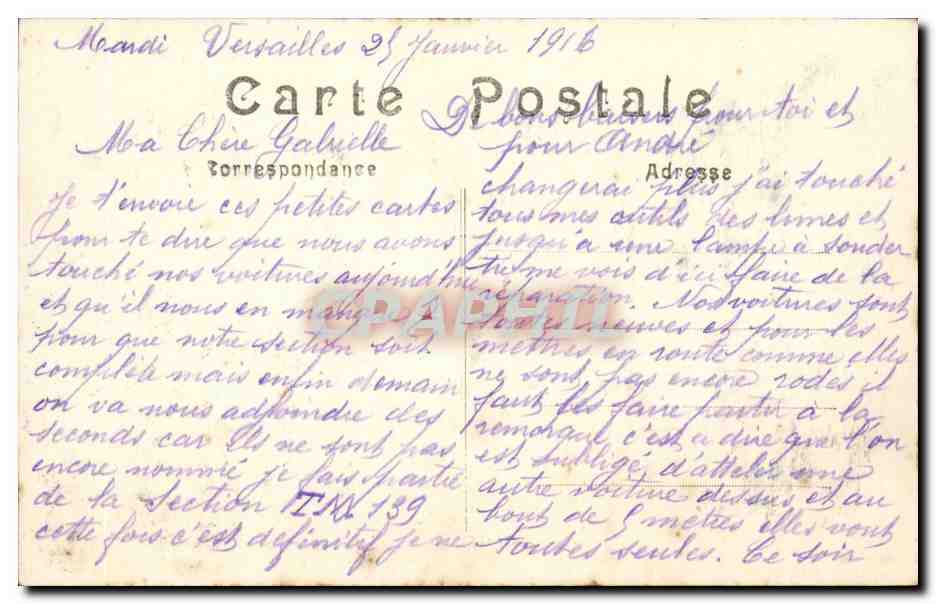 Mardi Versailles 25 Janvier 1916
Carte Postale
Correspondance
Adresse
Ma Chère Gabrielle
Je t'envoie ces petites cartes
pour te dire que nous avons
touché nos voitures aujourd'hui
et qu'il nous en manque
pour que notre section soit
complète mais enfin demain
on va nous adjoindre des
seconds car ils ne sont pas
encore nommé je fais partie
de la section 139
cette fois c'est définitif je ne
De bons baisers pour toi et
pour André
changerai plus j'ai touché
tous mes outils des limes et
jusqu'à une lampe à souder
me vois d'ici faire de la
réparation. Nos voitures sont
toutes neuves et pour les
mettres en route comme elles
ne sont pas encore rodes il
faut les faire partir à la
remorque c'est a dire que l'on
est oubligé d'atteler une
autre voiture dessus et au
bout de 5 mètres elles vont
toutes seules. Ce soir
CPAPHIL